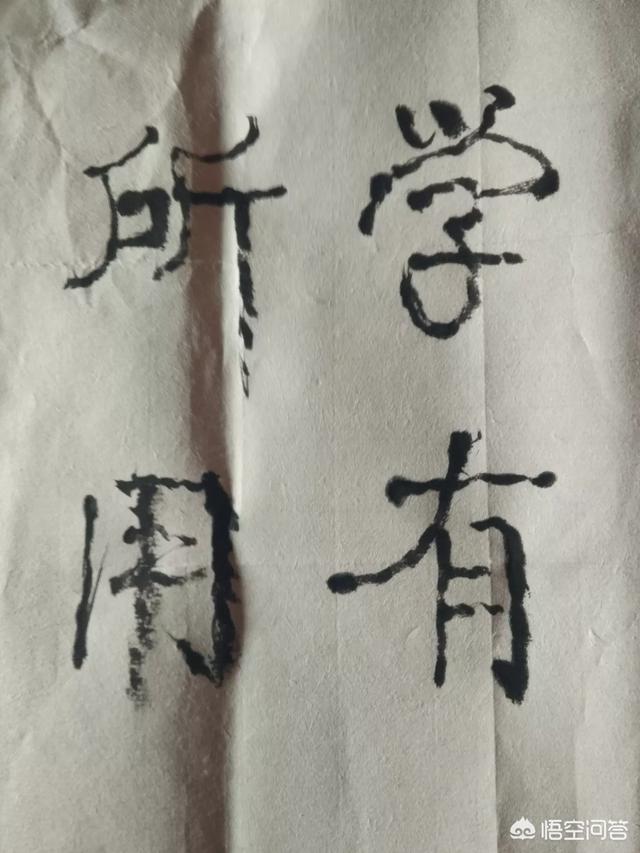 学有
所用
悟空问答